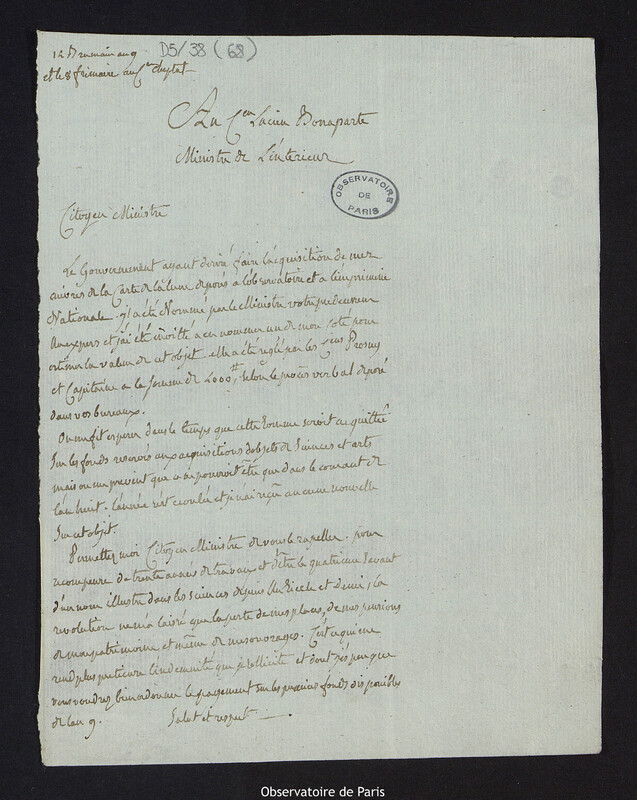 12 Brumaire an 9 D5/38 (68)
et le 8 frimaire au Cen Chaptal
Au Cen Lucien Bonaparte
Ministre de L'interieur
OBSERVATOIRE
DE
PARIS
Citoyen Ministre
Le Gouvernement ayant desiré faire l'acquisition de mes
cuivres de la Carte de la lune deposés à l'observatoire et a l'imprimerie
Nationale. il a été Nommé par le Ministre votre predecesseur
un expert et j'ai été invitté a en nommer un de mon coté pour
estimer la valeur de cet objet. elle a été reglé par les Cens Prony
et Capitaine a la somme de 2000tt, selon le procès verbal deposé
dans vos bureaux.
On me fit esperer dans le temps que cette somme seroit acquittée
sur les fonds reservés aux acquisitions d'objets de Sciences et arts
mais on me prevint que ce ne pouvoit être que dans le courant de
l'an huit. l'année s'est ecoulée et je n'ai reçu aucune nouvelle
sur cet objet.
Permettez moi Citoyen Ministre de vous le rapeller. pour
recompense de trente années de travaux et d'être le quatrieme Savant
d'un nom illustre dans les sciences depuis un siecle et demi, la
revolution ne m'a laissé que la perte de mes places, de mes pensions
de mon patrimoine et même de mes ouvrages. C'est ce qui me
rend plus pretieuse l'indemnité que je sollicite et dont j'espere que
vous voudrez bien ordonner le payement sur les premiers fonds disponibles
de l'an 9. Salut et respect
Observatoire de Paris